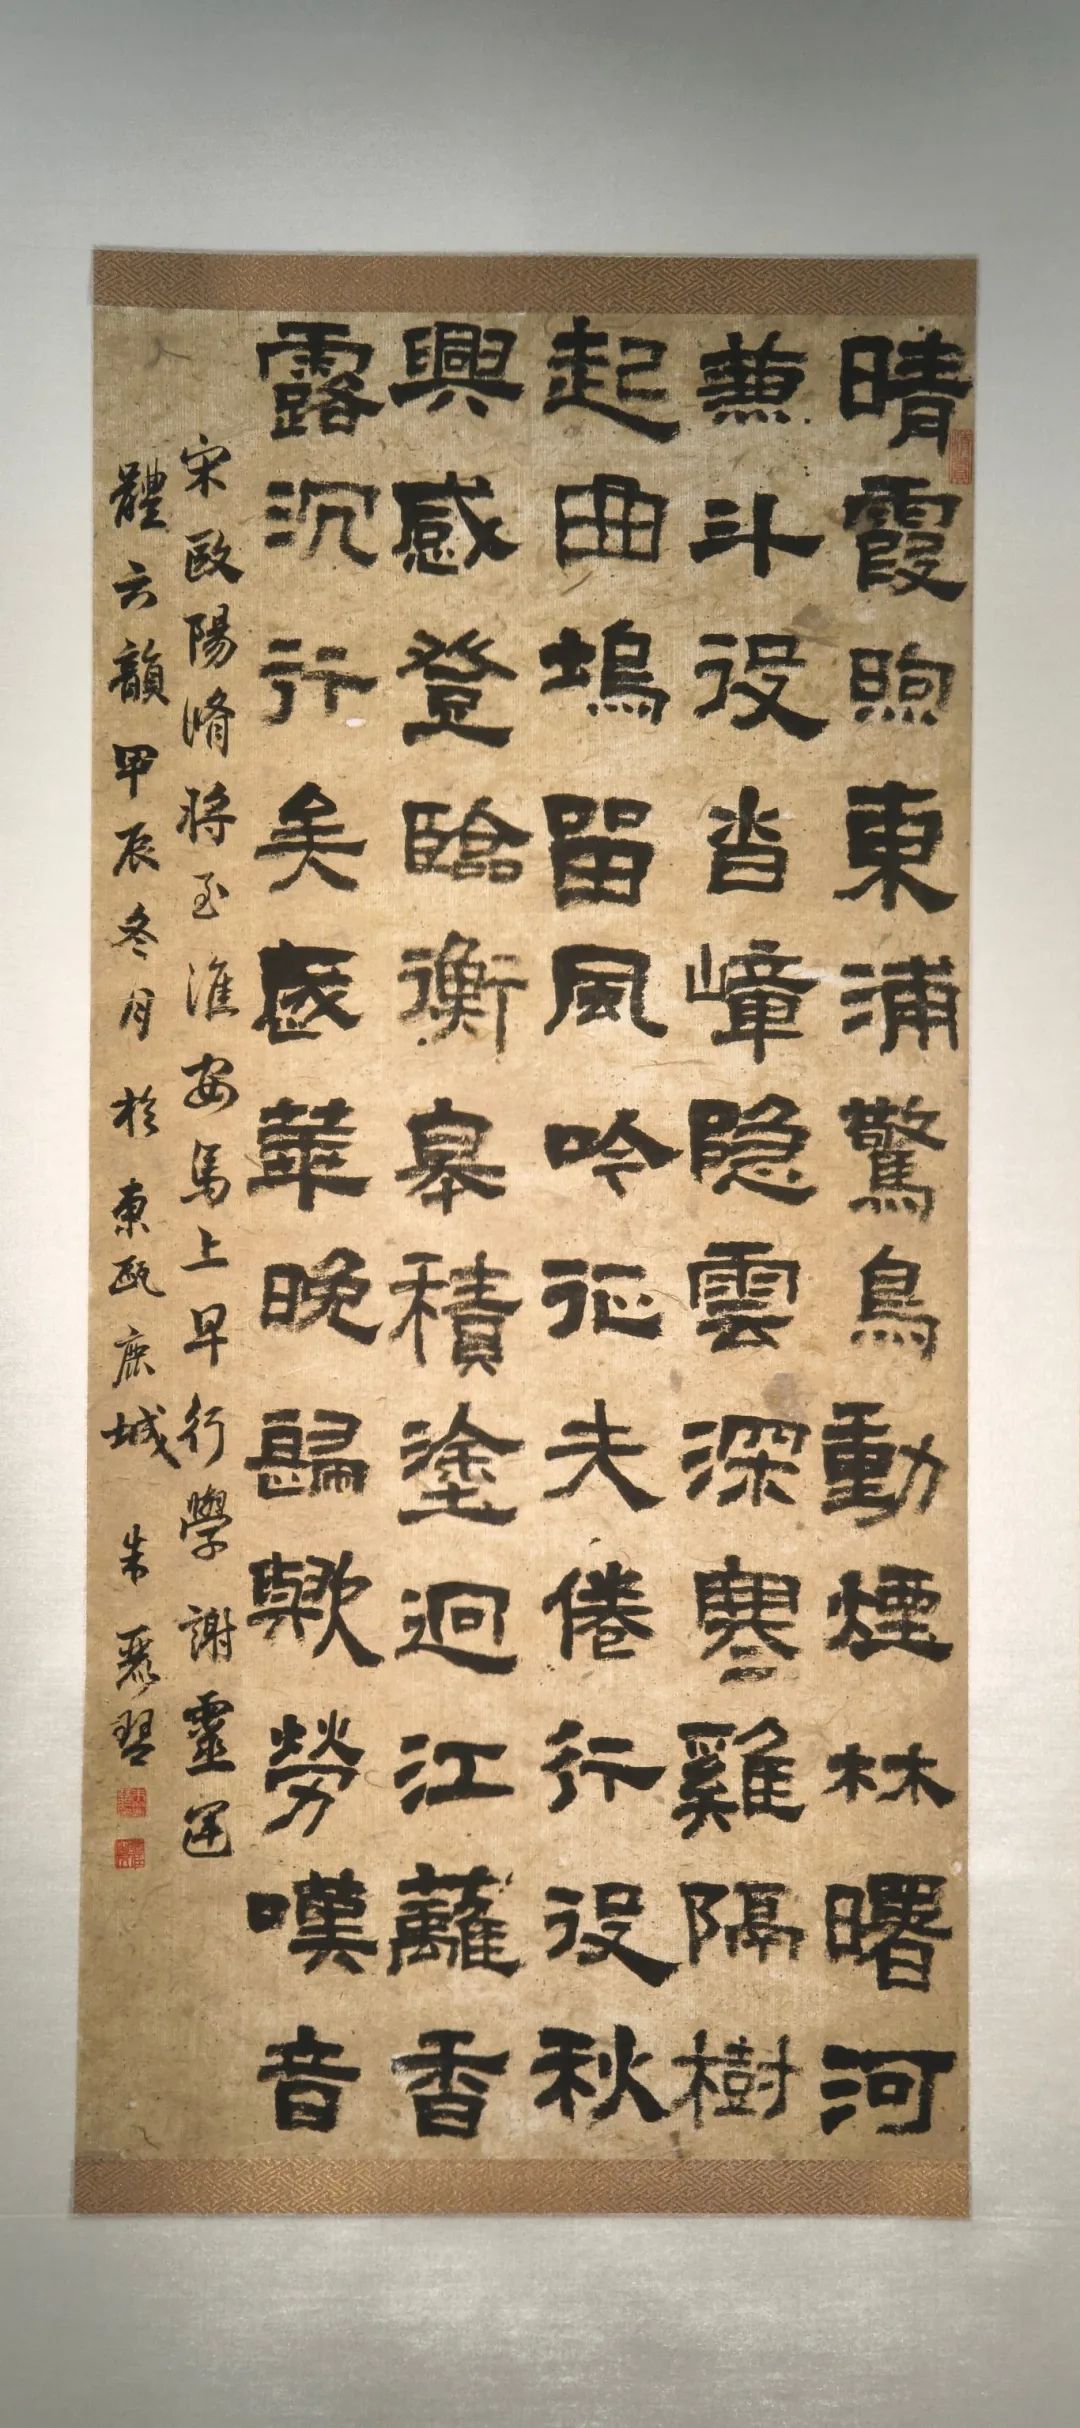 晴霞煦東浦驚鳥動煙林曙河
兼斗沒沓嶂隐雲深寒雞隔樹
起曲塢留風吟征夫倦行役秋
興感登臨衡皋積塗迥江蘺香
露沉行矣歲華晚歸歟勞嘆音
宋歐陽脩將至淮安馬上早行學謝靈運
體六韻甲辰冬月於東甌鹿城朱